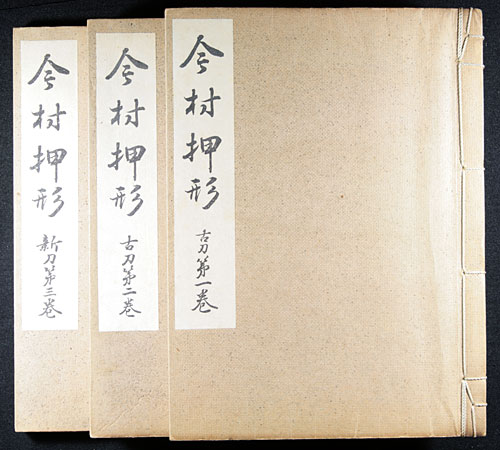 今村押形
古刀第一巻
今村押形
古刀第二巻
今村押形
新刀第三巻